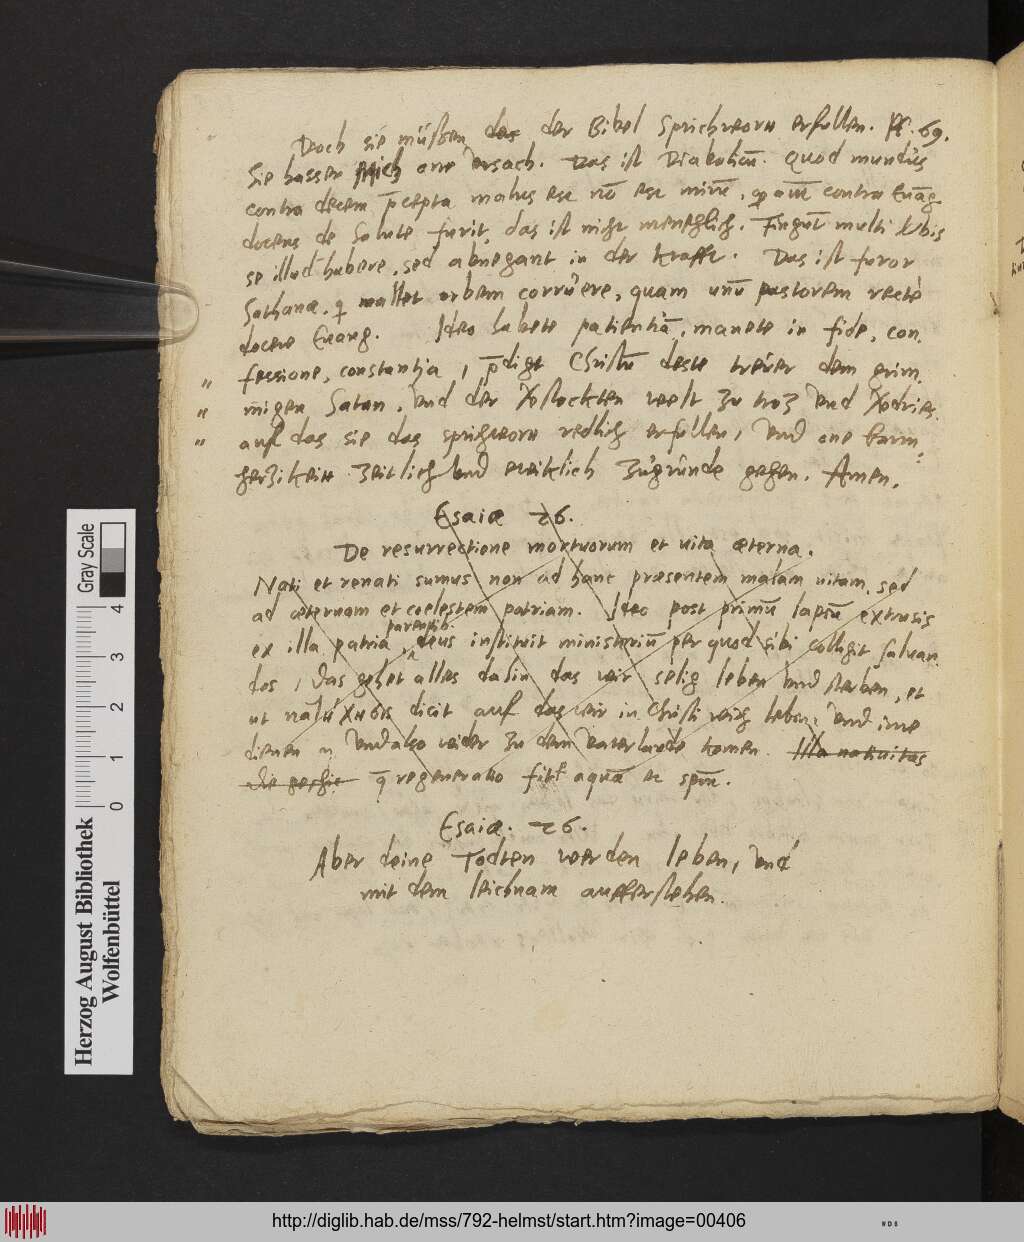 Doch sie müssen des der Bibel Sprichworn erfullen. Ps. 69.
Sie hassen Mich one Vrsach. Das ist Diabolicū. Quod mundus
contra decem p̄cepta malus est nō est mirū, qđ autē contra Euāg
docens de Salute furit, das ist nicht menschlich. Fingūt multi verbis
se illud habere, sed abnegant in der krafft. Das ist furor
Sathanæ, q mallet orbem corruere, quam unū pastorem rectè
docere Euang. Ideo habete patientiā, manete in fide, con
fessione, constantia, p̄digt Christū deste treuer dem grim,
" migen Satan, vnd der verstockten welt zu troz vnd verdries
" auf das sie das sprichworn redlich erfullen, vnd one barm
" herzikeitt zeitlich vnd ewiklich zugrunde gehen. Amen.
Esaiæ 26.
De resurrectione mortuorum et uita æterna.
Nati et renati sumus non ad hanc præsentem malam uitam, sed
ad æternam et coelestem patriam. Ideo post primū lapsū extrusis
parentib.
ex illa patria, deus instituit ministeriū per quod sibi colligit saluan
dos, das gehet alles dahin das wir selig leben vnd sterben, et
ut dicit auf das wir in Christi reich leben, vnd ime
dienen vnd also wider zu dem vaterlande komen. Illa natiuitas
q̄ regeneratio fitt aquā et spm̄.
Esaiæ. 26.
Aber deine Todten werden leben, vnd
mit dem leichnam aufferstehen.
Gray Scale
0 1 2 3 4
Herzog August Bibliothek
Wolfenbüttel
http://diglib.hab.de/mss/792-helmst/start.htm?image=00406